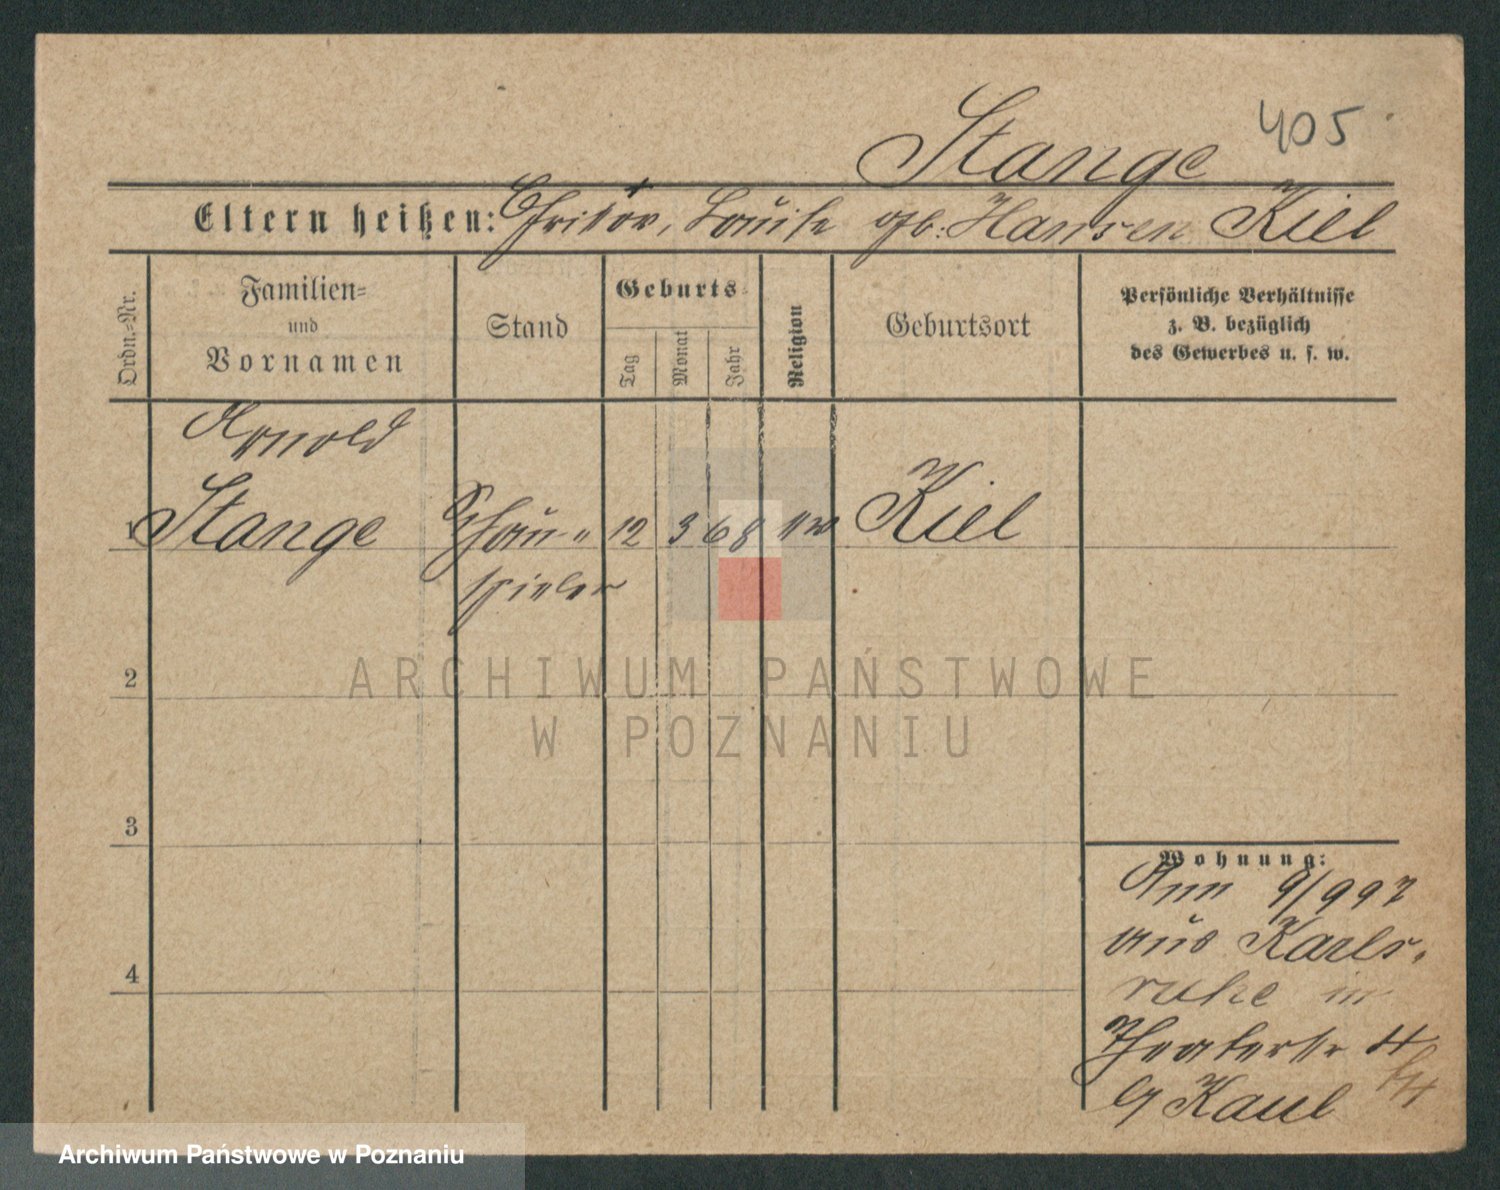 Stange 405
Eltern heißen: Louise geb: Hansen Kiel
Ordn.-Nr.
Familien-
und
Vornamen
Stand
Geburts-
Tag
Monat
Jahr
Religion
Geburtsort
Persönliche Verhältnisse
z. B. bezüglich
des Gewerbes u. s. w.
Arnold
1 Stange Schau- 12 3 68 Kiel
spieler
2
3
4
Wohnung:
aus Karls-
ruhe in
Theaterstr 4
Kaul
ARCHIWUM PAŃSTWOWE
W POZNANIU
Archiwum Państwowe w Poznaniu